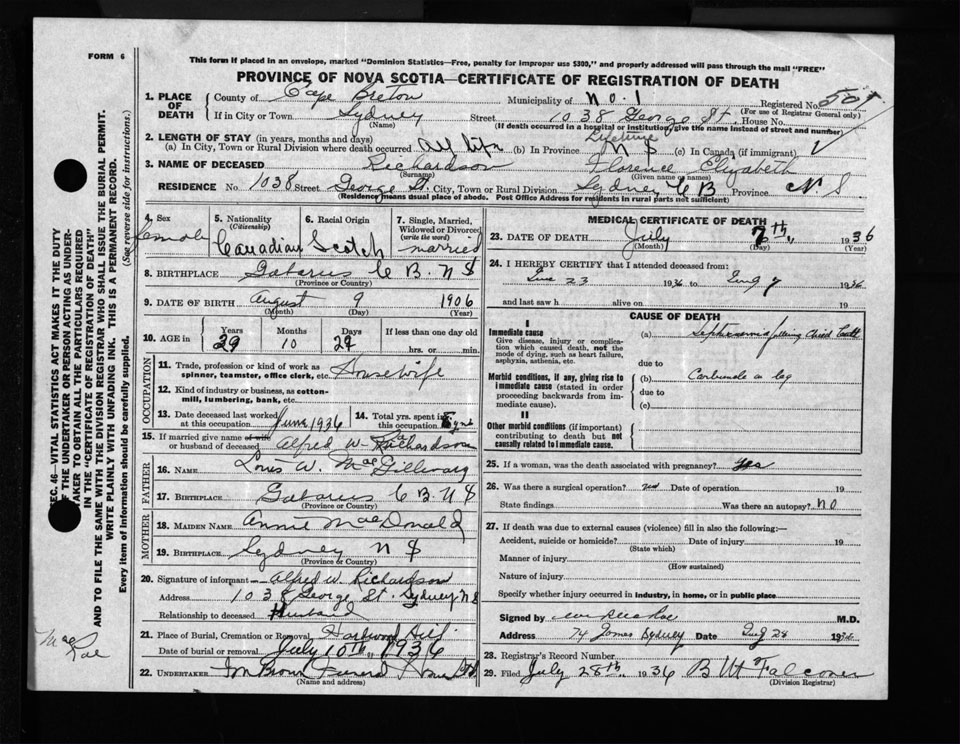 FORM 6
This form if placed in an envelope, marked "Dominion Statistics—Free, penalty for improper use $300," and properly addressed will pass through the mail "FREE"
PROVINCE OF NOVA SCOTIA—CERTIFICATE OF REGISTRATION OF DEATH
1. PLACE OF DEATH County of Cape Breton Municipality of No. 1 Registered No. 505
(For use of Registrar General only)
If in City or Town Sydney Street 1038 George St. House No.
(Name) (If death occurred in a hospital or institution, give the name instead of street and number)
2. LENGTH OF STAY (in years, months and days) Lifetime
(a) In City, Town or Rural Division where death occurred All life (b) In Province N S (c) In Canada (if immigrant)
3. NAME OF DECEASED Richardson Florence Elizabeth
(Surname) (Given name or names)
RESIDENCE No. 1038 Street George St. City, Town or Rural Division Sydney C B Province N S
(Residence means usual place of abode. Post Office Address for residents in rural parts not sufficient)
4. Sex female
5. Nationality (Citizenship) Canadian
6. Racial Origin Scotch
7. Single, Married, Widowed or Divorced (write the word) married
8. BIRTHPLACE Gabarus C B. N S
(Province or Country)
9. DATE OF BIRTH August 9 1906
(Month) (Day) (Year)
10. AGE in Years 29 Months 10 Days 29 If less than one day old hrs. or min.
OCCUPATION
11. Trade, profession or kind of work as spinner, teamster, office clerk, etc. Housewife
12. Kind of industry or business, as cotton-mill, lumbering, bank, etc.
13. Date deceased last worked at this occupation June 1936
14. Total yrs. spent in this occupation
15. If married give name of wife or husband of deceased Alfred W. Richardson
FATHER
16. Name W.
17. Birthplace Gabarus C B N S
(Province or Country)
MOTHER
18. MAIDEN NAME Annie MacDonald
19. BIRTHPLACE Sydney N S
(Province or Country)
20. Signature of informant Alfred W. Richardson
Address 1038 George St. Sydney N S
Relationship to deceased Husband
21. Place of Burial, Cremation or Removal Hardwood Hill
Date of burial or removal July 10th 1936
22. UNDERTAKER Brown
(Name and address)
MEDICAL CERTIFICATE OF DEATH
23. DATE OF DEATH July 7th 1936
(Month) (Day) (Year)
24. I HEREBY CERTIFY that I attended deceased from:
23 1936 to 7 1936
and last saw h alive on 19
CAUSE OF DEATH
I
Immediate cause
Give disease, injury or complication which caused death, not the mode of dying, such as heart failure, asphyxia, asthenia, etc.
(a) Septicaemia
due to
Morbid conditions, if any, giving rise to immediate cause (stated in order proceeding backwards from immediate cause).
(b) Carbuncle on leg
due to
(c)
II
Other morbid conditions (if important) contributing to death but not causally related to immediate cause.
25. If a woman, was the death associated with pregnancy? Yes
26. Was there a surgical operation? Date of operation 19
State findings Was there an autopsy? NO
27. If death was due to external causes (violence) fill in also the following:—
Accident, suicide or homicide? Date of injury 19
(State which)
Manner of injury
(How sustained)
Nature of injury
Specify whether injury occurred in industry, in home, or in public place
Signed by M.D.
Address 74 Sydney Date 28 1936
28. Registrar's Record Number
29. Filed July 28th 1936 Falconer
(Division Registrar)
SEC. 46—VITAL STATISTICS ACT MAKES IT THE DUTY
OF THE UNDERTAKER OR PERSON ACTING AS UNDERTAKER TO OBTAIN ALL THE PARTICULARS REQUIRED
IN THE "CERTIFICATE OF REGISTRATION OF DEATH"
AND TO FILE THE SAME WITH THE DIVISION REGISTRAR WHO SHALL ISSUE THE BURIAL PERMIT.
WRITE PLAINLY WITH UNFADING INK. THIS IS A PERMANENT RECORD.
Every item of information should be carefully supplied. (See reverse side for instructions.)